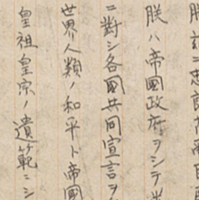 ニ忠良
朕ハ帝國政府ヲシテ米
ニ對シ各國共同宣言ヲ
世界人類ノ和平ト帝國
皇祖皇宗ノ遺範ニシ